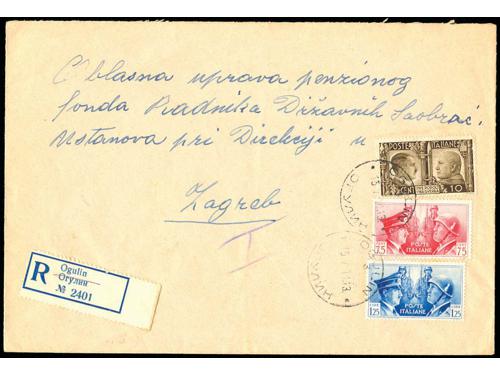 Oblasna uprava penzionog
fonda Radnika Državnih Saobrać.
Ustanova pri Direkciji u
Zagreb
R
Ogulin
Огулин
№ 2401
POSTE ITALIANE
CENT 10
75 POSTE ITALIANE 75
1,25 POSTE ITALIANE 1,25